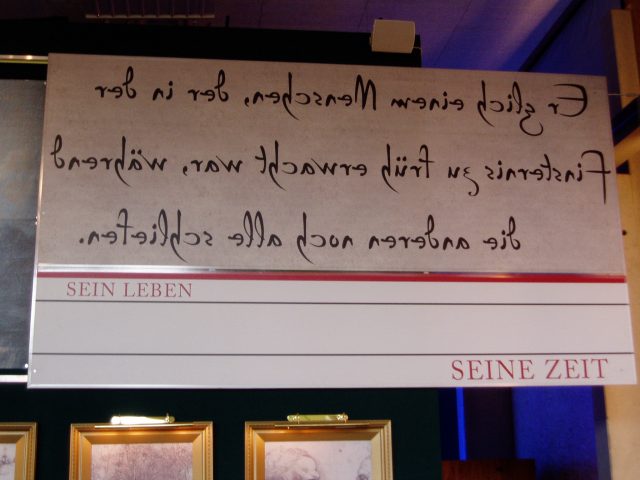 Er glich einem Menschen, der in der
Finsternis zu früh erwacht war, während
die anderen noch alle schliefen.
SEIN LEBEN
SEINE ZEIT